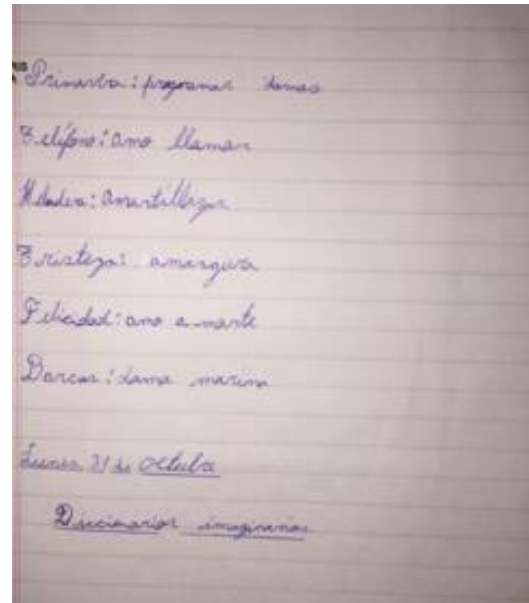 : programar damas
Teléfono: amo llamar
: amartillazgar
Tristeza: amargura
Felicidad: amo amarte
Barcos: dama marina
Lunes 21 de octubre
Diccionarios imaginarios